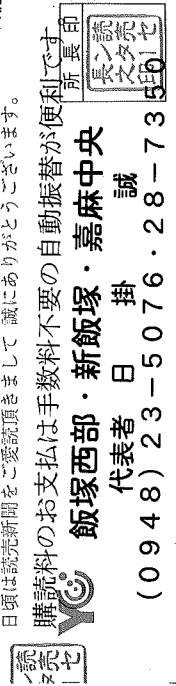 日頃は読売新聞をご愛読頂きまして 誠にありがとうございます。
購読料のお支払は手数料不要の自動振替が便利です
飯塚西部・新飯塚・嘉麻中央
代表者 日 掛 誠
(0948)23-5076・28-7350
所長印